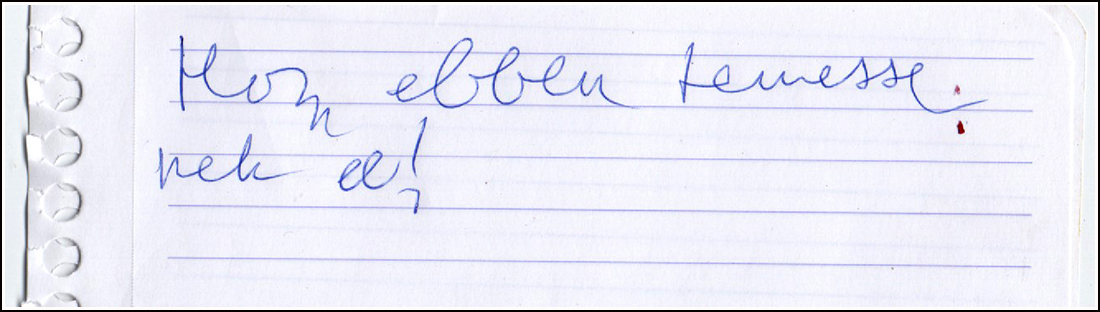 Hogy ebben temesse-
nek el!